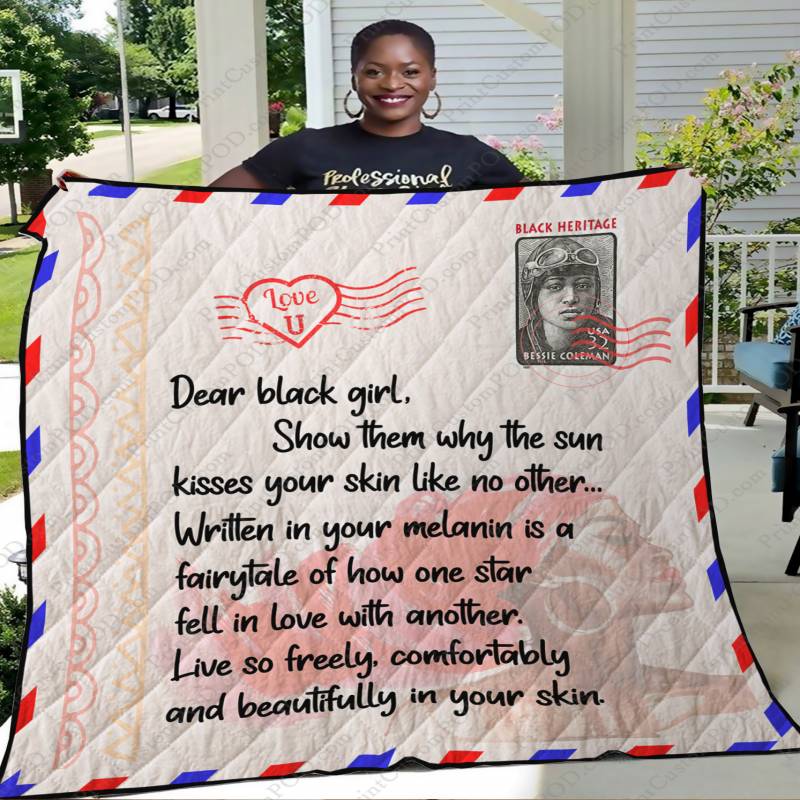 Professional
BLACK HERITAGE
Love
U
USA
32
BESSIE COLEMAN
Dear black girl,
Show them why the sun
kisses your skin like no other...
Written in your melanin is a
fairytale of how one star
fell in love with another.
Live so freely, comfortably
and beautifully in your skin.
PrintCustomPOD.com